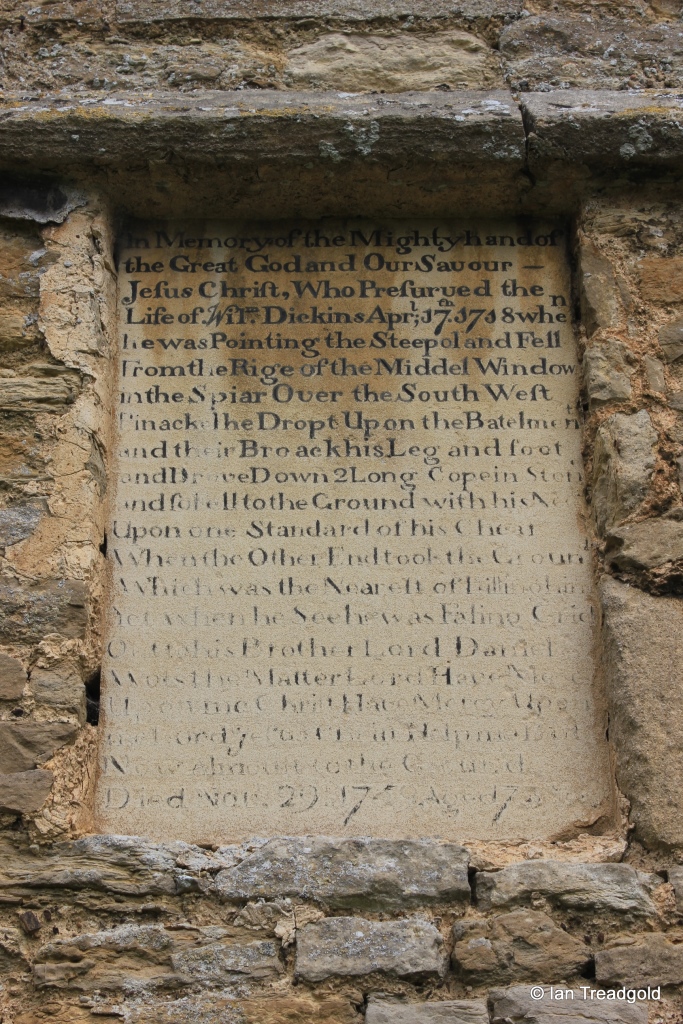 In Memory of the Mighty hand of
the Great God and Our Savour —
Jeſus Chriſt, Who Preſurued the
Life of Will:m Dickins Apr;l 17.th 1718 when
he was Pointing the Steepol and Fell
From the Rige of the Middel Window
in the Spiar Over the South Weſt
Pinackel he Dropt Upon the Batelment
and their Broack his Leg and foot
and Drove Down 2 Long Copein Ston
and ſo fell to the Ground with his Neck
Upon one Standard of his Chear
When the Other End took the Ground
Which was the Nearest of Killing him
Yet when he See he was Faling Crid
Out to his Brother Lord Daniel
Wots the Matter Lord Have Mercy
Upon me Chriſt Have Mercy Upon
me Lord Jeſus Help me But
Now almoſt to the Ground
Died Nov. 29. 17 Aged 73
© Ian Treadgold